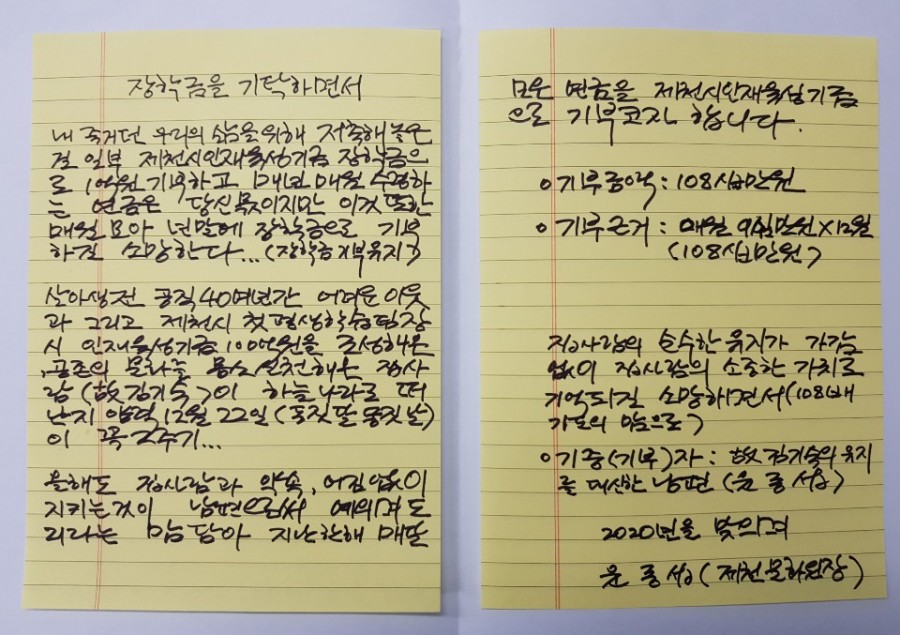 장학금을 기탁하면서
내 죽거던 우리의 삶을 위해 저축해 놓은
걸 일부 제천시인재육성기금 장학금으
로 1억원 기부하고 매년 매월 수령하
는 연금은 당신 몫이지만 이것 또한
매월 모아 년말에 장학금으로 기부
하길 소망한다... (장학금 기부 유지)
살아생전 공직 40여년간 어려운 이웃
과 그리고 제천시 첫 평생학습팀장
시 인재육성기금 100억원을 조성해온
공존의 문화를 몸소 실천해온 집사
람(故 김기숙)이 하늘나라로 떠
난지 양력 12월 22일 (동짓달 동짓날)
이 꼭 2주기...
올해도 집사람과 약속, 어김없이
지키는 것이 남편으로써 예의며 도
리라는 맘 담아 지난 한해 매달
모은 연금을 제천시인재육성기금
으로 기부코자 합니다.
○ 기부총액 : 108십만원
○ 기부근거 : 매월 9십만원×12월
(108십만원)
집사람의 순수한 유지가 가감
없이 집사람의 소중한 가치로
기억되길 소망하면서 (108배
기도의 맘으로)
○ 기증(기부)자 : 故 김기숙의 유지
를 대신한 남편 (윤종섭)
2020년을 맞으며
윤종섭 (제천문화원장)